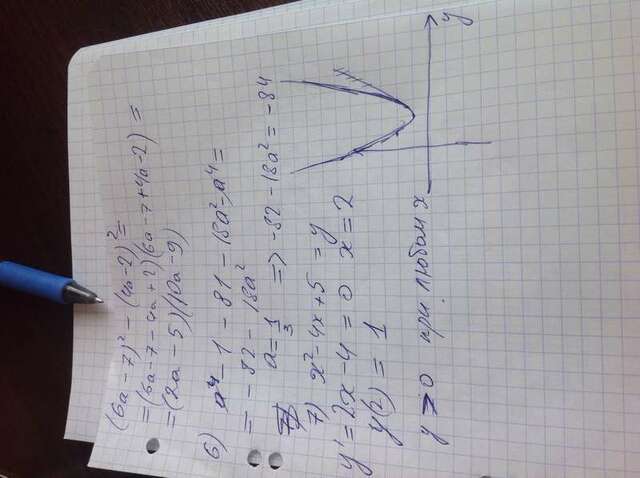 (6a-7)² - (4a-2)² =
=(6a-7-4a+2)(6a-7+4a-2) =
=(2a-5)(10a-9)
6) a⁴-1-81-18a²-a⁴=
= -82-18a²
a=1/3 => -82-18a²=-84
7) x²-4x+5 = y
y'=2x-4=0 x=2
y(2) = 1
y>0 при любом x
y